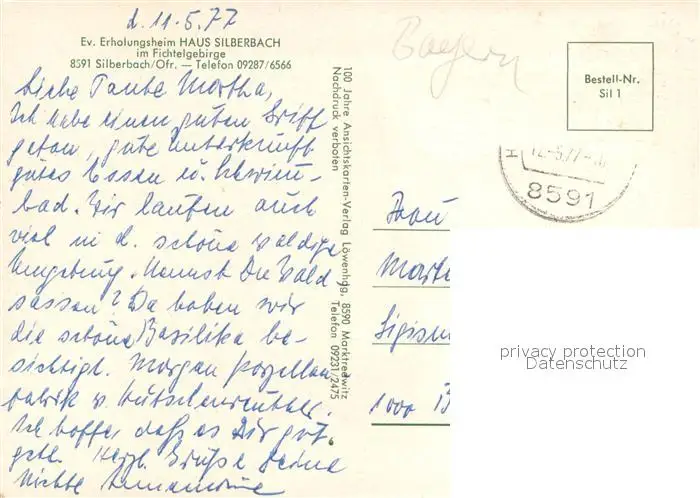 d. 11.5.77
Ev. Erholungsheim HAUS SILBERBACH
im Fichtelgebirge
8591 Silberbach/Ofr. — Telefon 09287/6566
Liebe Tante Martha,
Ich habe einen guten Griff
getan, gute Unterkunft
gutes Essen u. Schwimm-
bad. Wir laufen auch
viel in d. schöne waldige
Umgebung. Kennst Du Wald
sassen? Da haben wir
die schöne Basilika be-
sichtigt. Morgen Porzellan
fabrik v. Hutschenreuther.
Ich hoffe, daß es Dir gut
geht. Herzl. Grüße Deine
Nichte Annemarie
100 Jahre Ansichtskarten-Verlag Löwenhag, 8590 Marktredwitz
Nachdruck verboten
Telefon 09231/2475
Bayern
Bestell-Nr.
Sil 1
12.-5.77
8591
Frau
Marth
Sigism
1000 B
privacy protection
Datenschutz